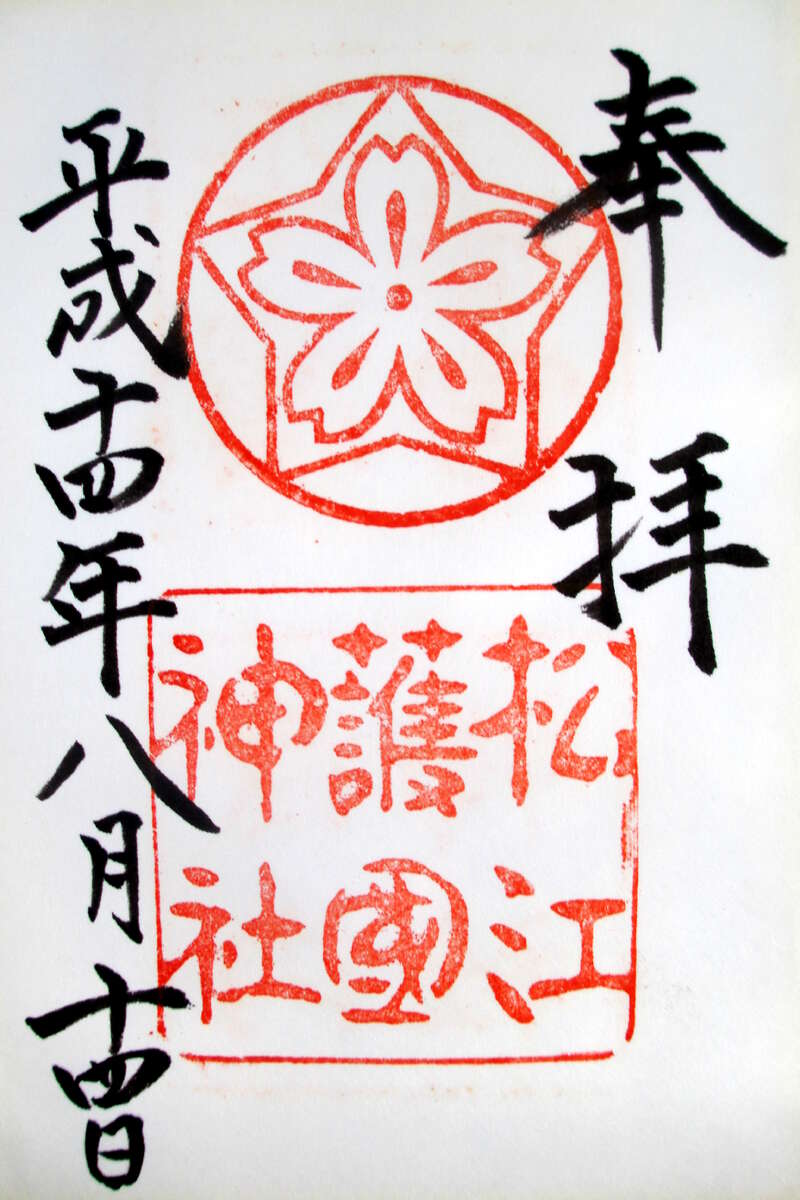 奉拝
松江
護國
神社
平成十四年八月十四日